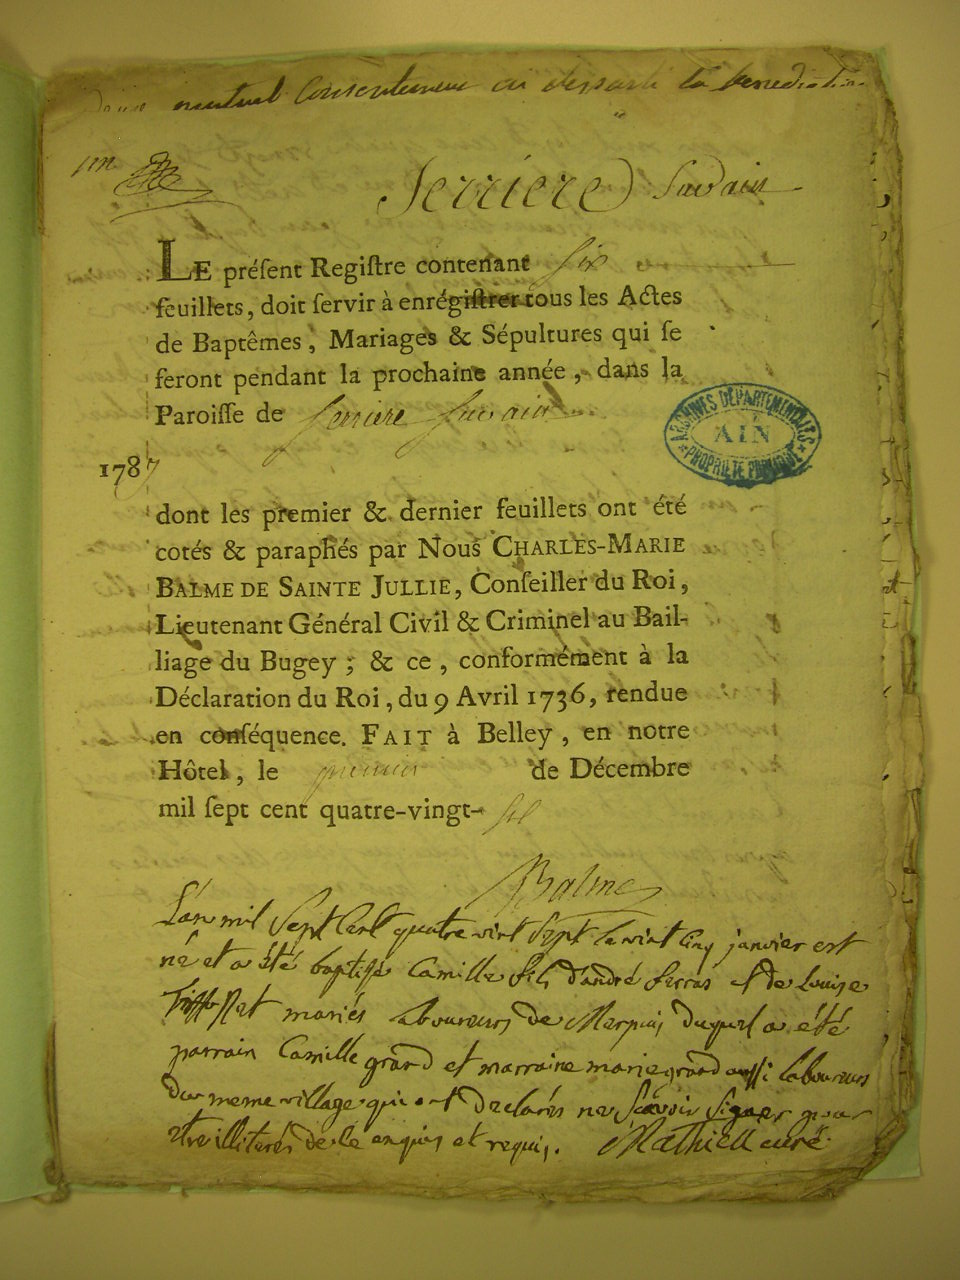 mutuel consentement ai départi la benediction
pm
Serriere Suvain
LE préſent Regiſtre contenant ſix
feuillets, doit ſervir à enrégiſtrer tous les Actes
de Baptêmes, Mariages & Sépultures qui ſe
feront pendant la prochaine année, dans la
Paroiſſe de Serriere Suvain
1787
ARCHIVES DÉPARTEMENTALES
AIN
PROPRIÉTÉ PUBLIQUE
dont les premier & dernier feuillets ont été
cotés & paraphés par Nous CHARLES-MARIE
BALME DE SAINTE JULLIE, Conſeiller du Roi,
Lieutenant Général Civil & Criminel au Bail-
liage du Bugey; & ce, conformément à la
Déclaration du Roi, du 9 Avril 1736, rendue
en conſéquence. FAIT à Belley, en notre
Hôtel, le premier de Décembre
mil ſept cent quatre-vingt- ſix
Balme
L'an mil Sept Cent quatre vint Sept le vint Cinq janvier est
né et a été baptisé Camille fils d'andré ferras et de Louise
mariés laboureurs de Merpuis duquel a été
parrain Camille grand et marraine marie grand aussi laboureurs
du meme village qui ont declarés ne Scavoir Signer pour
etre illiterés de ce enquis et requis. Mathieu curé